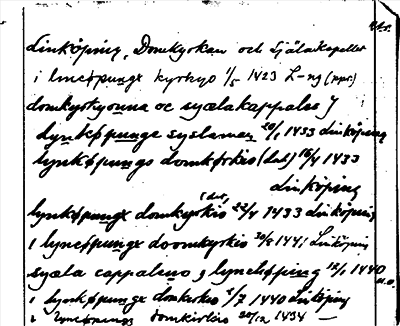 Linköping, Domkyrkan och Själakapellet
i lincøpungx kyrkyo 1/5 1423 L-ng (nyr)
domkyrkyonna oc syælakappalas J
lynkøpunge syslaman 20/1 1433 Linköping
lynkøpungs domkørkio (dat) 16/4 1433
Linköping
(dat)
lynkøpungx domkyrkio 22/4 1433 Linköping
i lyncøpungx doomkyrkio 30/8 1441 Linköping
syæla cappaleno j lynchøping 12/1 1440
i lynkøpungx domkirkio 2/7 1440 Linköping
i domkirkio 20/12 1434 —